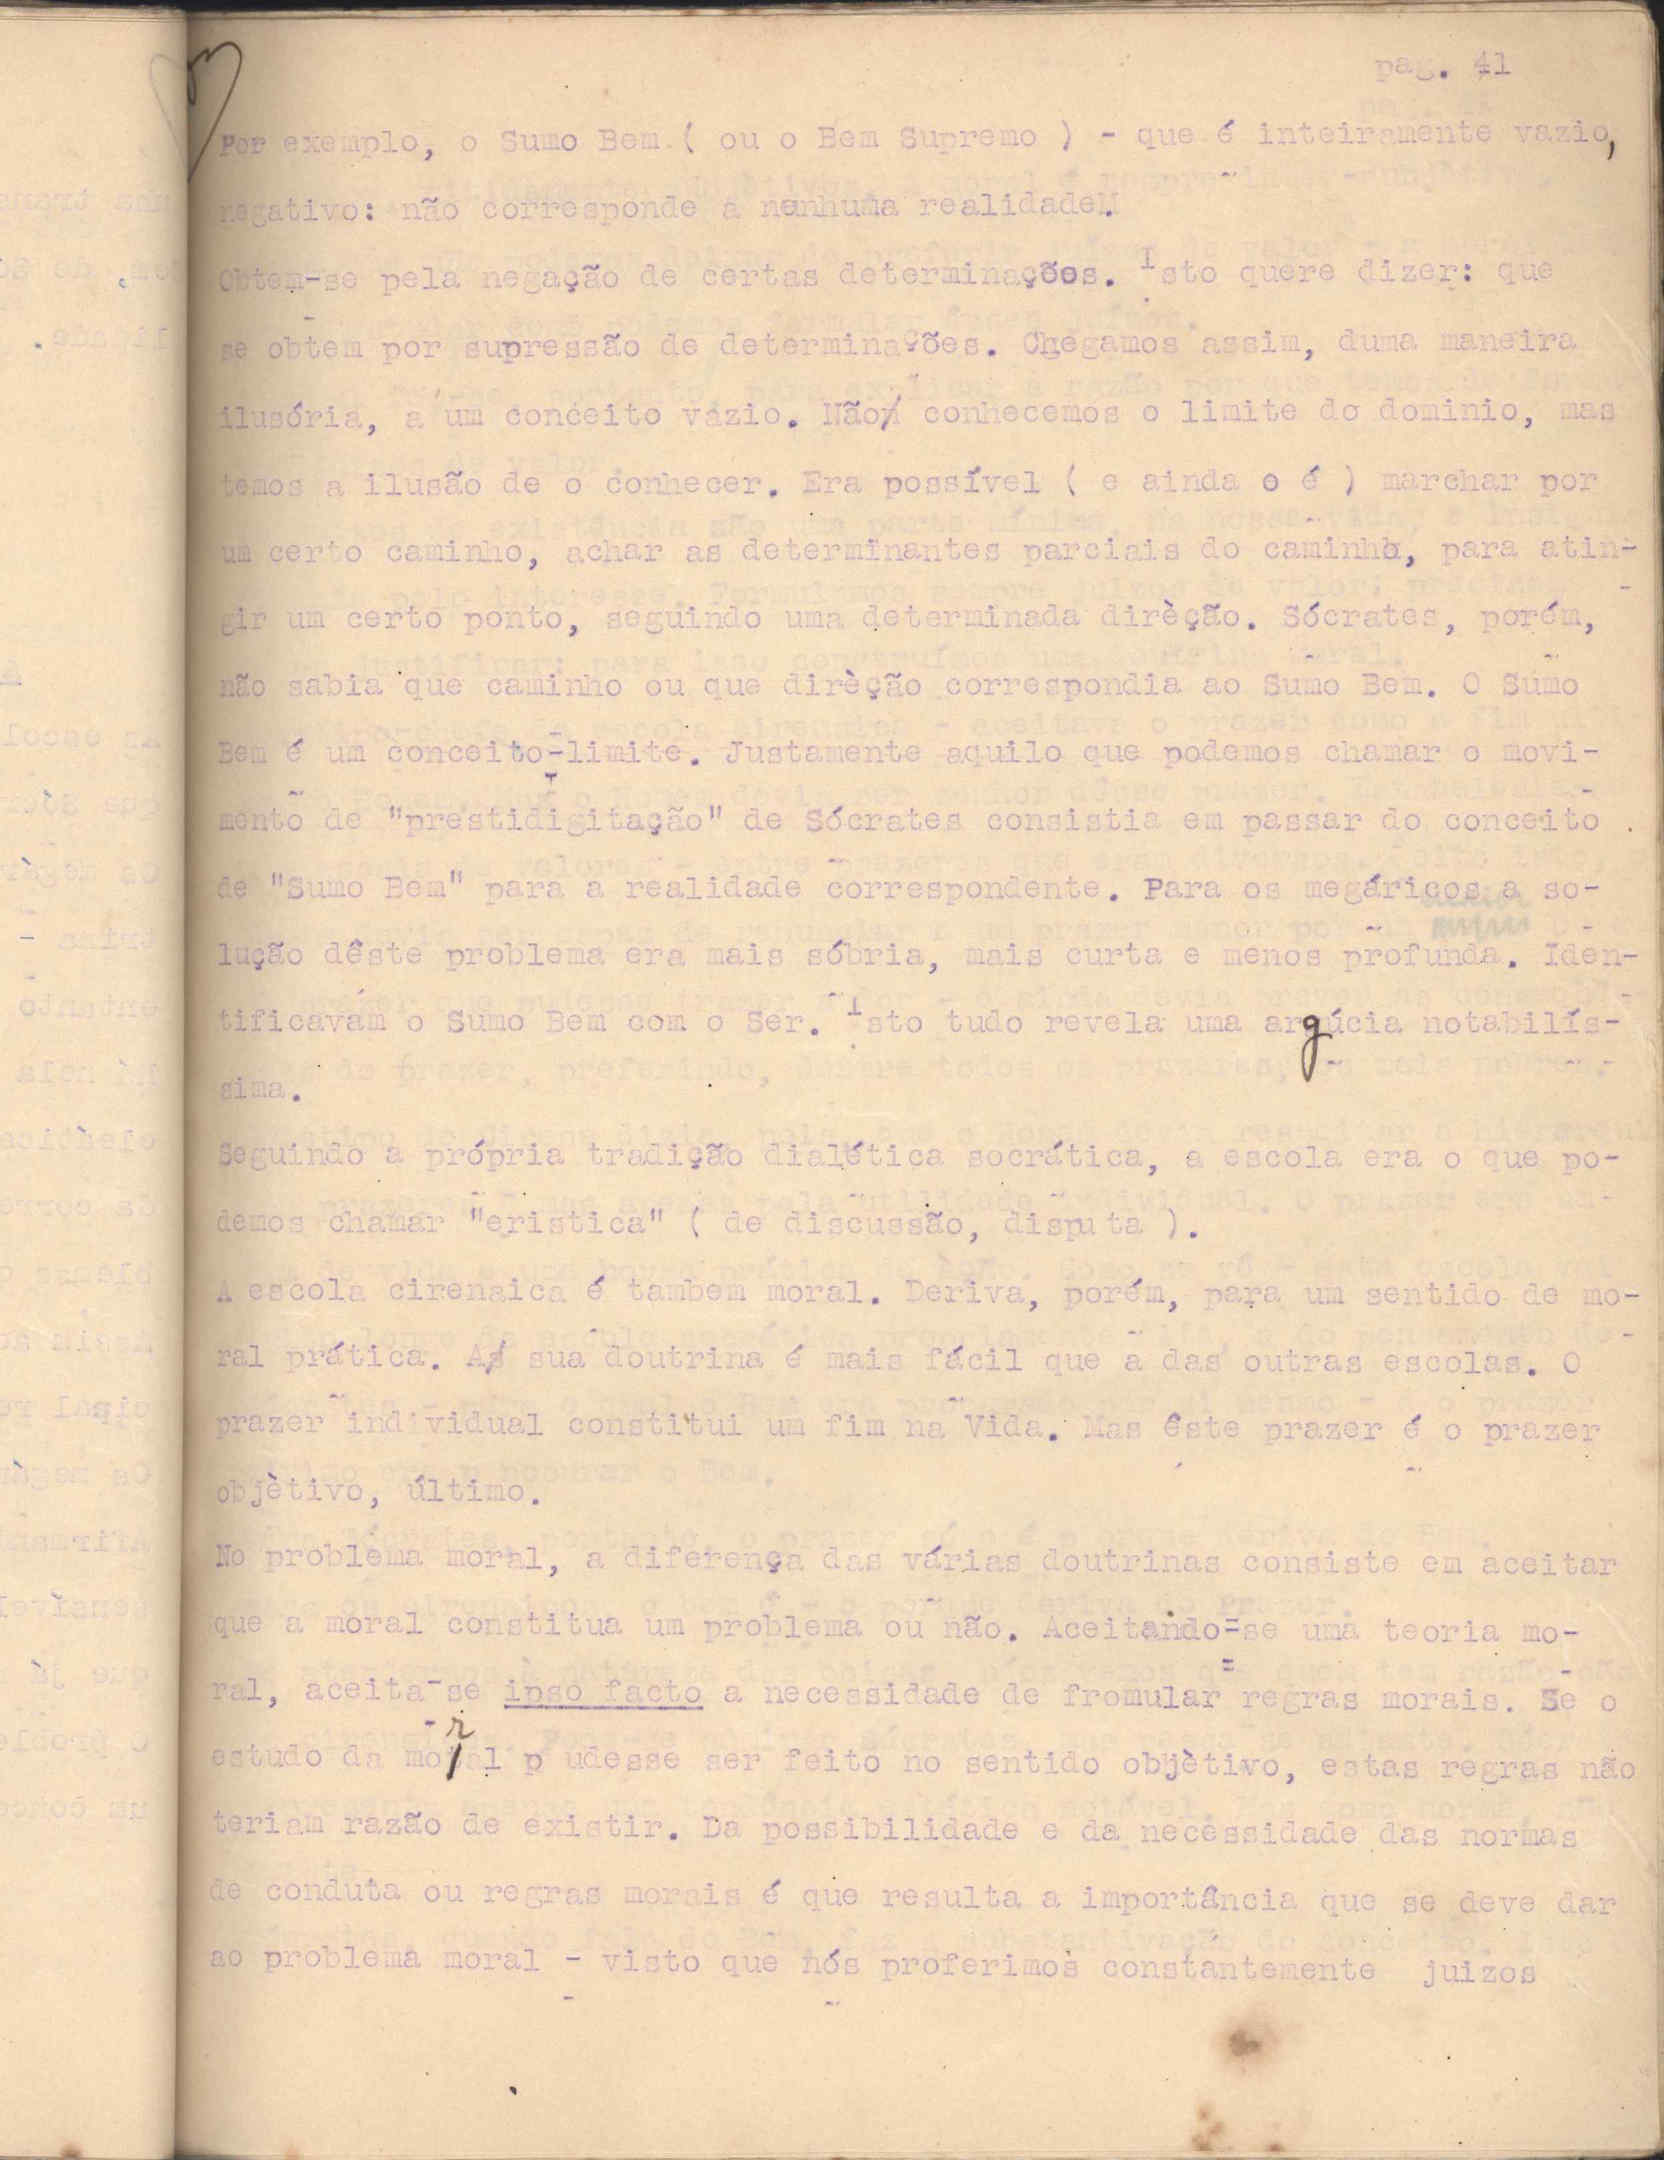 pag. 41
Por exemplo, o Sumo Bem ( ou o Bem Supremo ) - que é inteiramente vazio,
negativo: não corresponde a nenhuma realidade.
Obtem-se pela negação de certas determinações. Isto quere dizer: que
se obtem por supressão de determinações. Chegamos assim, duma maneira
ilusória, a um conceito vazio. Não conhecemos o limite do dominio, mas
temos a ilusão de o conhecer. Era possível ( e ainda o é ) marchar por
um certo caminho, achar as determinantes parciais do caminho, para atin-
gir um certo ponto, seguindo uma determinada dirèção. Sócrates, porém,
não sabia que caminho ou que dirèção correspondia ao Sumo Bem. O Sumo
Bem é um conceito-limite. Justamente aquilo que podemos chamar o movi-
mento de "prestidigitação" de Sócrates consistia em passar do conceito
de "Sumo Bem" para a realidade correspondente. Para os megáricos a so-
lução dêste problema era mais sóbria, mais curta e menos profunda. Iden-
tificavam o Sumo Bem com o Ser. Isto tudo revela uma argúcia notabilís-
sima.
Seguindo a própria tradição dialética socrática, a escola era o que po-
demos chamar "eristica" ( de discussão, disputa ).
A escola cirenaica é tambem moral. Deriva, porém, para um sentido de mo-
ral prática. A sua doutrina é mais fácil que a das outras escolas. O
prazer individual constitui um fim na Vida. Mas êste prazer é o prazer
objètivo, último.
No problema moral, a diferença das várias doutrinas consiste em aceitar
que a moral constitua um problema ou não. Aceitando-se uma teoria mo-
ral, aceita-se ipso facto a necessidade de fromular regras morais. Se o
estudo da moral p udesse ser feito no sentido objètivo, estas regras não
teriam razão de existir. Da possibilidade e da necessidade das normas
de conduta ou regras morais é que resulta a importância que se deve dar
ao problema moral - visto que nós proferimos constantemente juizos